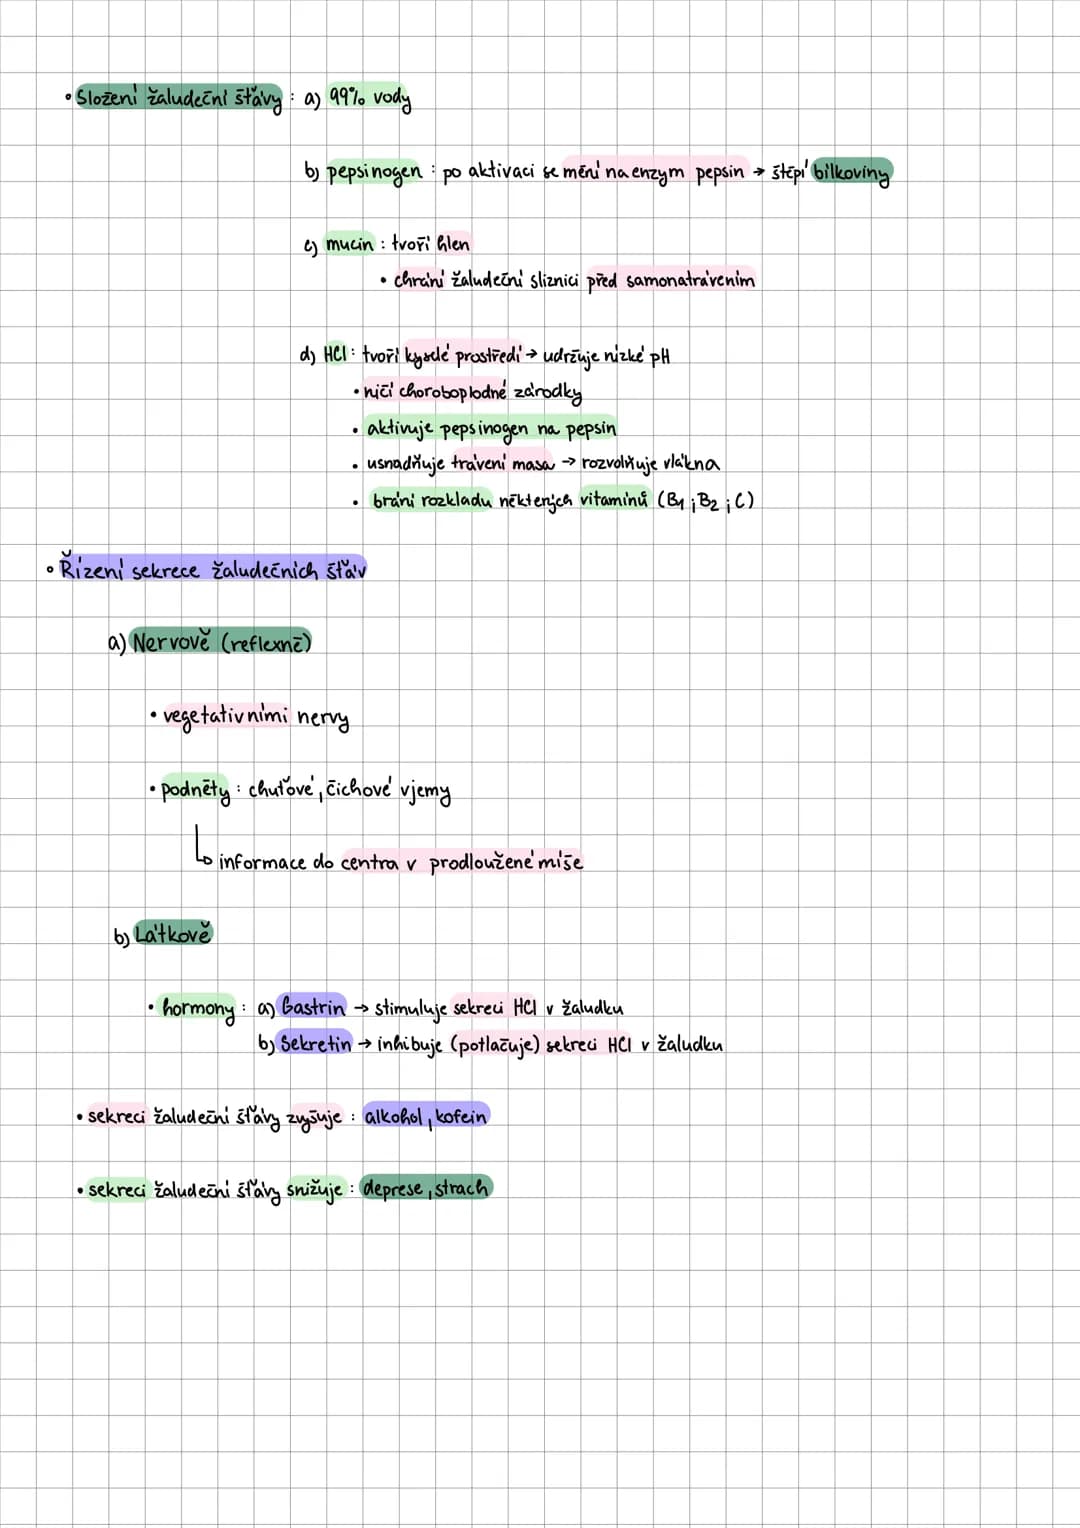 • Složení žaludeční šťávy : a) 99% vody
b) pepsinogen : po aktivaci se mění na enzym pepsin → štěpí bílkoviny
c) mucin : tvoří hlen
• chrání žaludeční sliznici před samonatrávením
d) HCl : tvoří kyselé prostředí → udržuje nízké pH
• ničí choroboplodné zárodky
• aktivuje pepsinogen na pepsin
• usnadňuje trávení masa → rozvolňuje vlákna
• brání rozkladu některých vitamínů (B1 ; B2 ; C)
• Řízení sekrece žaludečních šťáv
a) Nervově (reflexně)
• vegetativními nervy
• podněty : chuťové, čichové vjemy
↳ informace do centra v prodloužené míše
b) Látkově
• hormony : a) Gastrin → stimuluje sekreci HCl v žaludku
b) Sekretin → inhibuje (potlačuje) sekreci HCl v žaludku
• sekreci žaludeční šťávy zvyšuje : alkohol, kofein
• sekreci žaludeční šťávy snižuje : deprese, strach